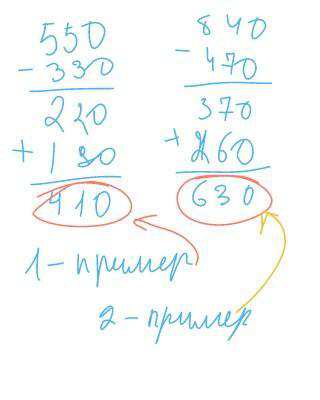 550
- 330
220
+
410
840
- 470
370
+ 260
630
1 - пример
2 - пример